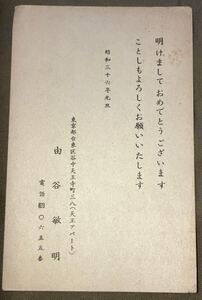 明けまして おめでとう ございます
ことしもよろしくお願いいたします
昭和三十六年元旦
東京都台東区谷中天王寺町三八(天王アパート)
由谷敏明
電話 〇六五五番